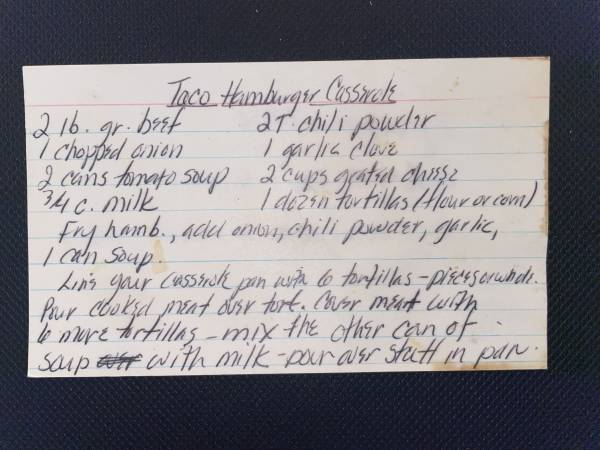 Taco Hamburger Casserole
2 lb. gr. beef 2T. chili powder
1 chopped onion 1 garlic clove
2 cans tomato soup 2 cups grated cheese
3/4 c. milk 1 dozen tortillas (flour or corn)
Fry hamb., add onion, chili powder, garlic,
1 can soup.
Line your casserole pan with 6 tortillas - pieces or whole.
Pour cooked meat over tort. Cover meat with
6 more tortillas - mix the other can of
soup over with milk - pour over stuff in pan.